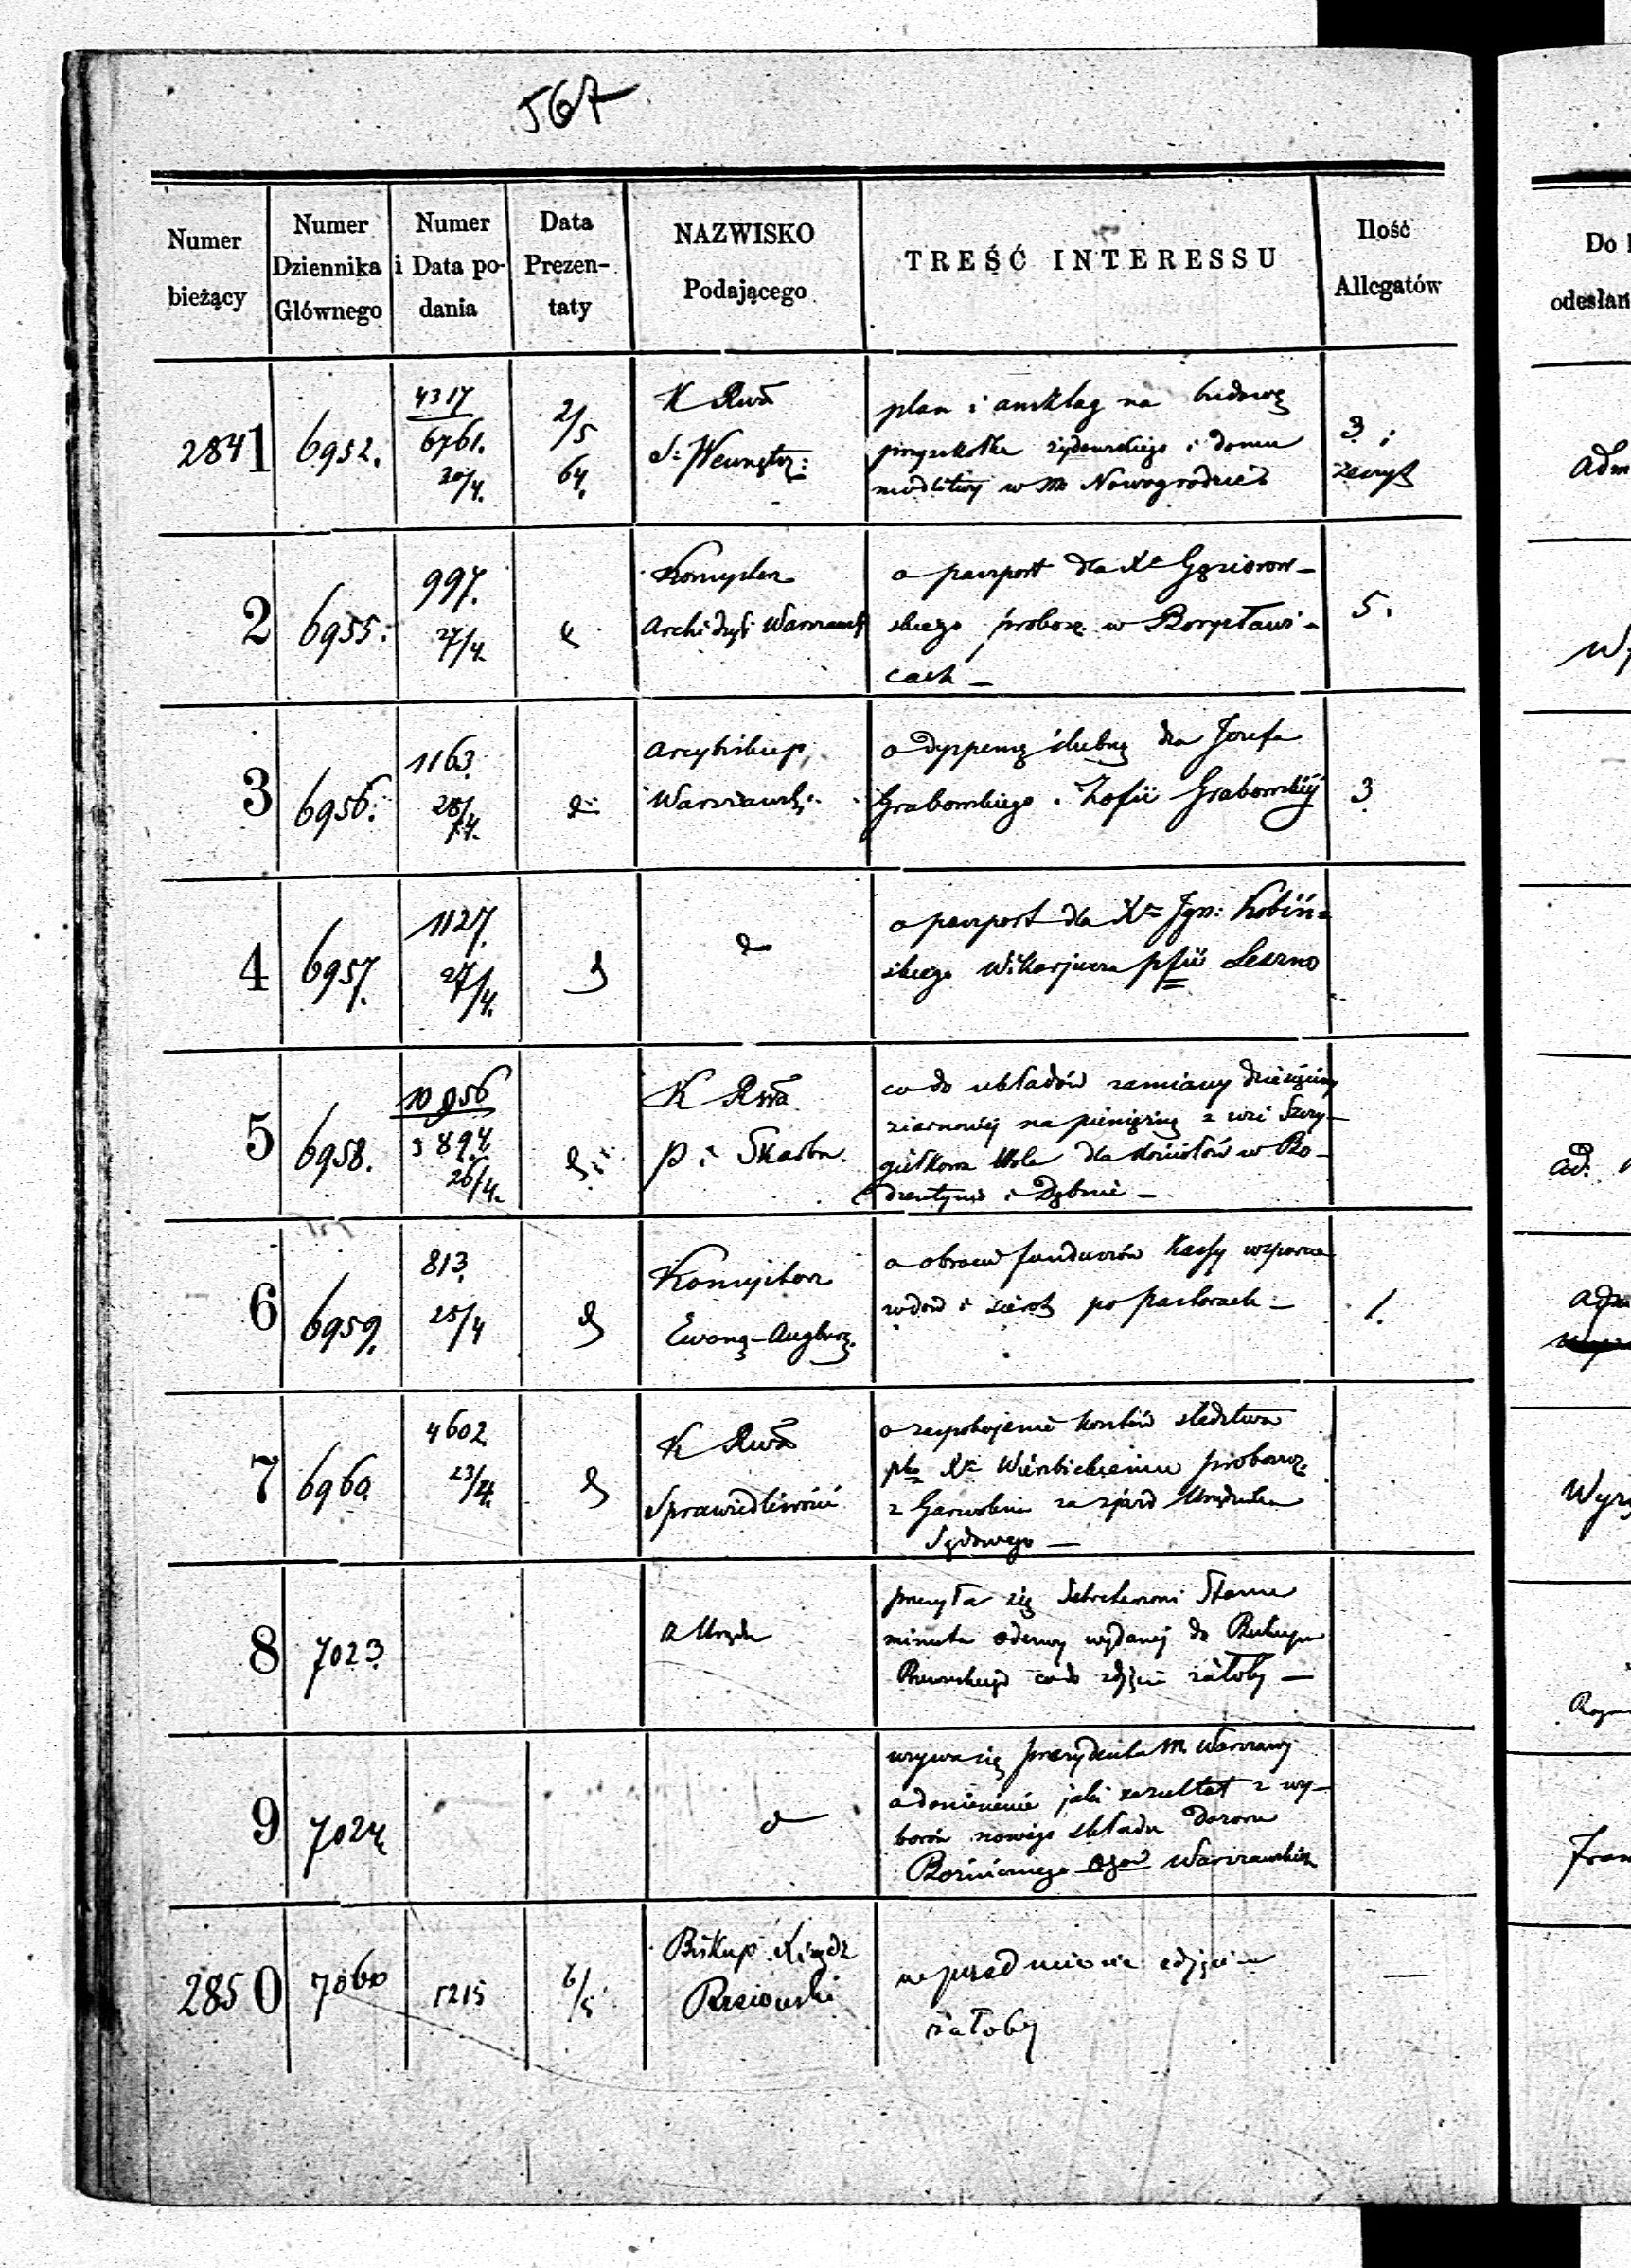 567
Numer bieżący
Numer Dziennika Głównego
Numer i Data podania
Data Prezentaty
NAZWISKO Podającego
TREŚĆ INTERESSU
Ilość Allegatów
Do
odesłan
2841
6952.
4317
6761.
20/4.
2/5
64.
K Rwa
S: Wewnętrz:
plan i anszlag na budowę
przyszkołka żydowskiego i domu
modlitwy w m. Nowogrodzie
3 i
zeszyt
adm
2
6955.
997.
27/4.
Konsystorz
Archidyi Warszawsk
o paszport dla Xa Gąsiorow-
skiego probosz. w Borysławi-
cach -
5.
3
6956.
1163.
28/4.
Arcybiskup
Warszawski
o dyspensę ślubną dla Józefa
Grabowskiego i Zofii Grabowskiéj
3
4
6957.
1127.
27/4.
o paszport dla Xa Ign: Kobiń-
skiego Wikarjusza pfii Leszno
5
6958.
10956
3894
26/4.
K Rwa
P i Skarbu.
co do układów zamiany dziesięciny
ziarnowéj na pieniężną z wsi Szczy-
Wola dla kościołów w Bo-
dzentynie i Dębnie -
6
6959.
813.
25/4
Konsystorz
Ewang-Augsburg.
o obrocie funduszów Kassy wsparcia
wdów i sierot po pastorach -
1.
7
6960
4602
23/4.
K Rwa
Sprawiedliwości
o zaspokojenie kosztów śledztwa
pko Xu Wierzbickiemu probosz.
z Garwolina za zjazd Urzędnika
Sądowego -
Wyz
8
7023.
z Urzędu
przesyła się Sekretarzowi Stanu
minuta odezwy wydanéj do Biskupa
Rzewuskiego co do zdjęcia żałoby -
9
7024
wzywa się prezydenta m. Warszawy
o doniesienie jaki rezultat z wy-
borów nowego składu Dozoru
Bóżniczego Warszawskich
2850
7060
1215
6/5
Biskup Xiądz
Rzewuski
w przedmiocie zdjęcia
żałoby
—